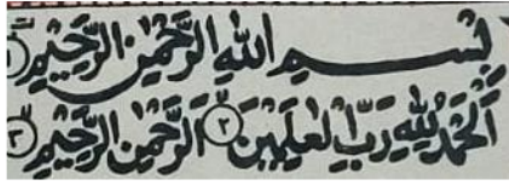 بِسْمِ اللهِ الرَّحْمٰنِ الرَّحِيْمِ ۝١
اَلْحَمْدُ لِلّٰهِ رَبِّ الْعٰلَمِيْنَ ۝٢ الرَّحْمٰنِ الرَّحِيْمِ ۝٣